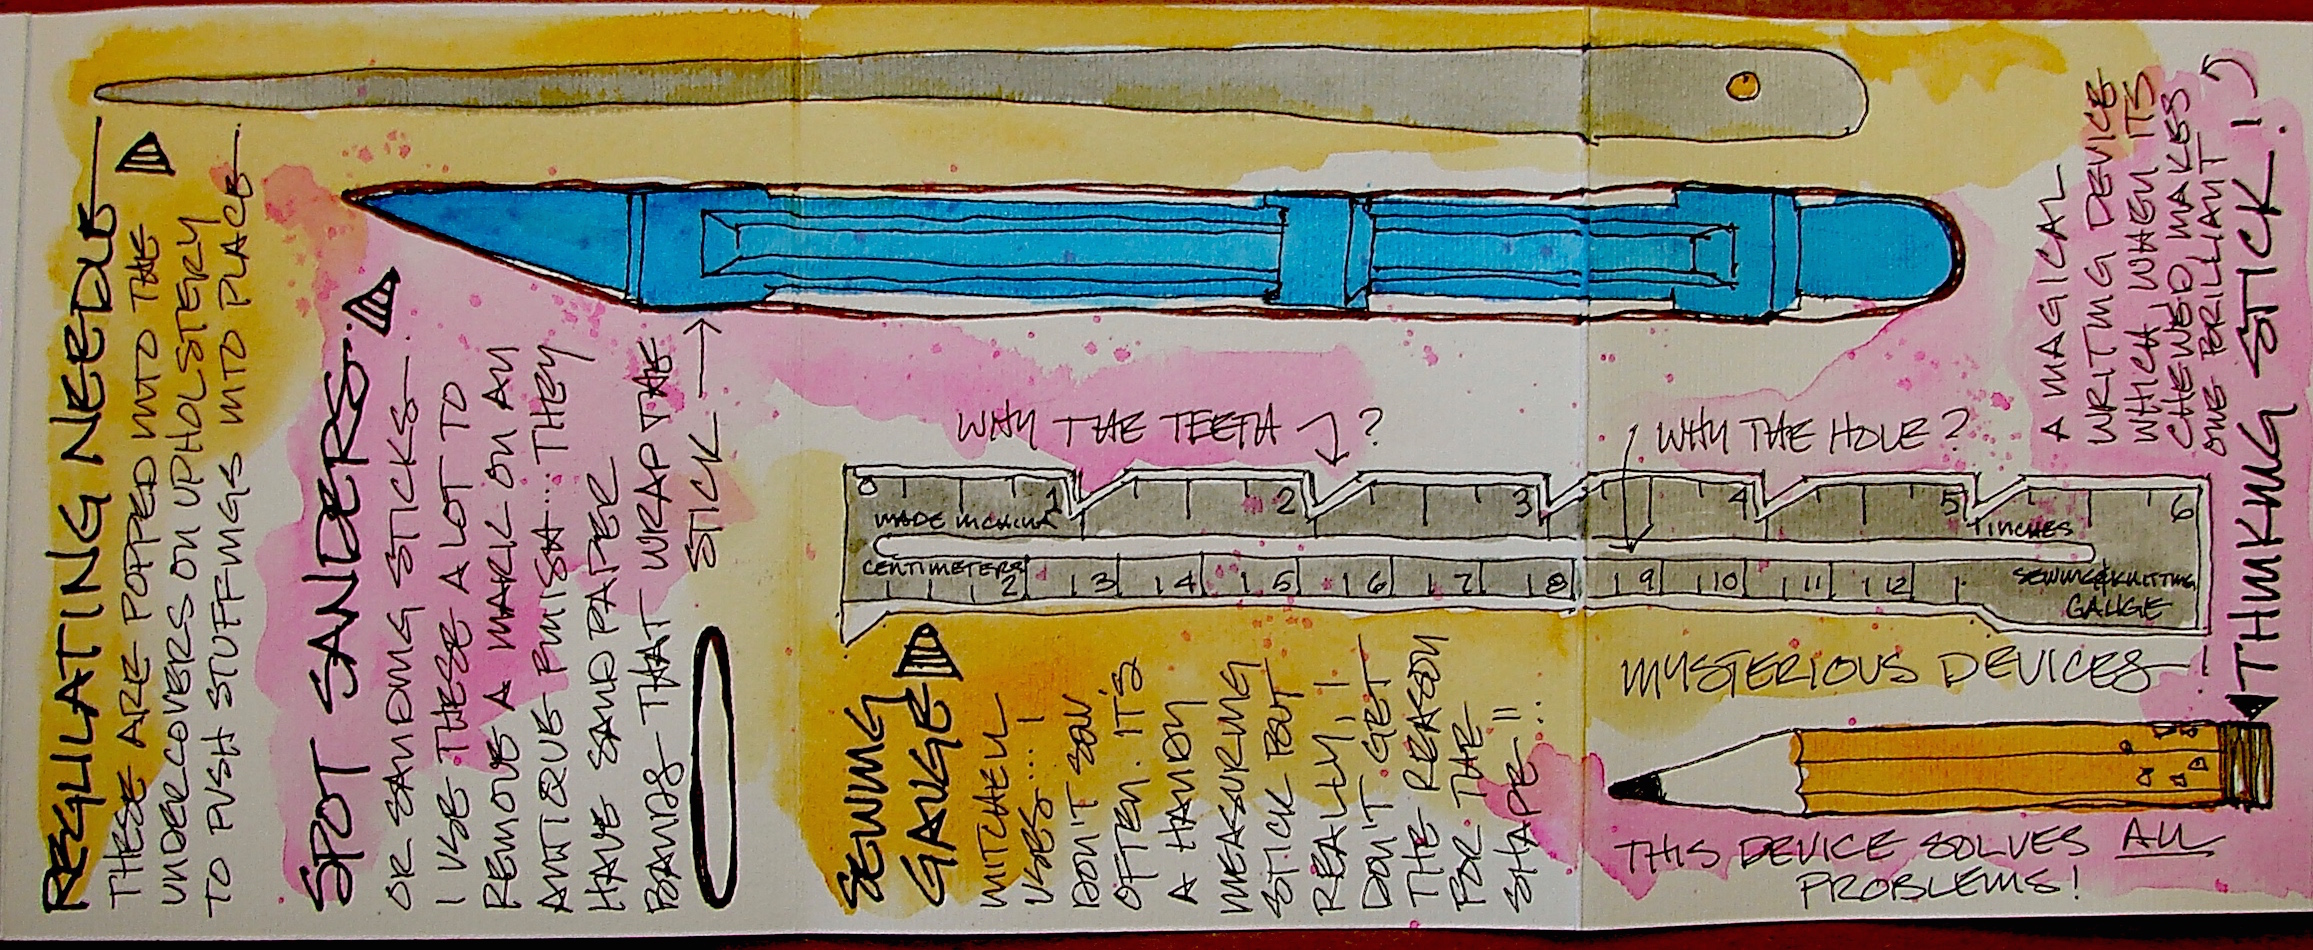 REGULATING NEEDLE
THESE ARE POPPED INTO THE
UNDERCOVERS ON UPHOLSTERY
TO PUSH STUFFINGS INTO PLACE
SPOT SANDERS.
OR SANDING STICKS.
I USE THESE A LOT TO
REMOVE A MARK ON AN
ANTIQUE FINISH... THEY
HAVE SANDPAPER
BANDS THAT WRAP THE
STICK
WHY THE TEETH ?
WHY THE HOLE?
0 1 2 3 4 5 6
MADE IN CHINA
INCHES
CENTIMETERS
2 3 4 5 6 7 8 9 10 11 12
SEWING & KNITTING
GAUGE
SEWING
GAUGE
MITCHELL
USES...!
DON'T SEW
OFTEN. IT'S
A HANDY
MEASURING
STICK BUT
REALLY, I
DON'T GET
THE REASON
FOR THE
SHAPE!!..
MYSTERIOUS DEVICES!
THIS DEVICE SOLVES ALL
PROBLEMS!
A MAGICAL
WRITING DEVICE
WHICH WHEN ITS
CHEWED MAKES
ONE BRILLIANT!
THINKING STICK!